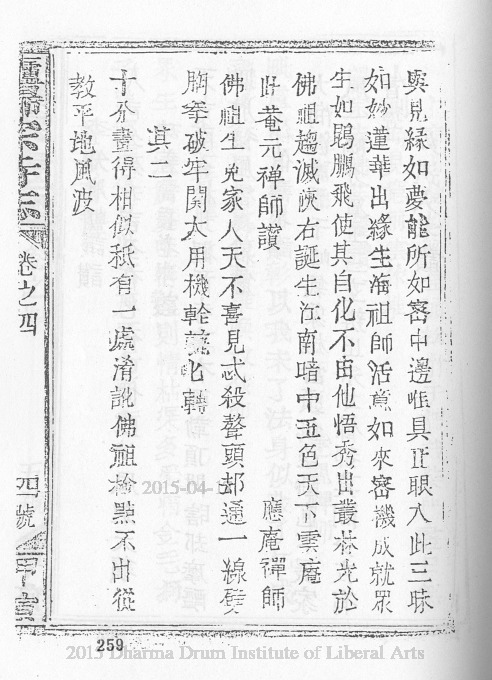 與見緣如夢能所如密中邊唯具正眼入此三昧
如妙蓮華出緣生海祖師活意如來密機成就眾
生如鵾鵬飛使其自化不由他悟秀出叢林光於
佛祖趨滅浹右誕生江南暗中五色天下雲庵
此菴元禪師讚 應庵禪師
佛祖生冤家人天不喜見忒殺聱頭却通一線劈
胸拳破牢關大用機輪 轉
其二
十分畫得相似秖有一處淆訛佛祖撿點不出從
教平地風波
宗寺志
卷之四
四號
259
2015-04-1
2015 Dharma Drum Institute of Liberal Arts